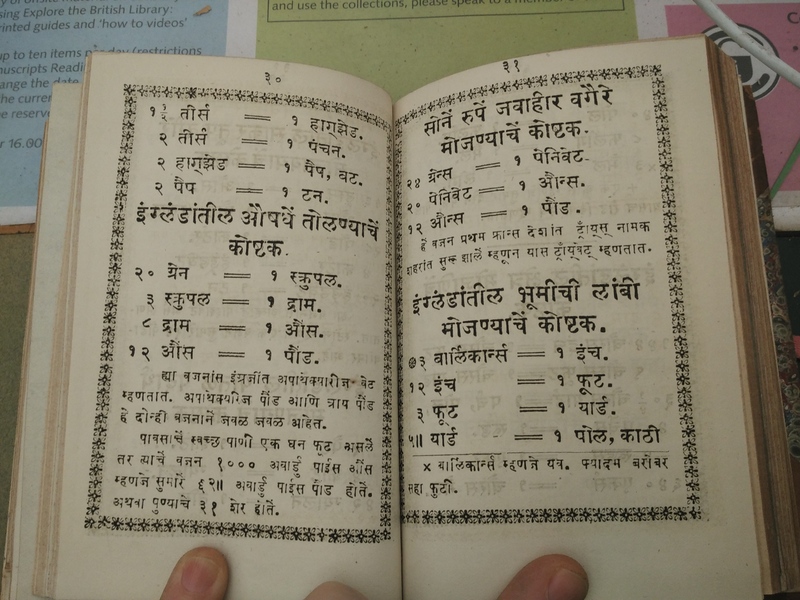 sing Explore the British Library:
rinted guides and 'how to videos'
up to ten items
day (restrictions
nuscripts Readi
hange the date
the curren
he reserve
r 16.00
and use the collections, please speak to a member
३०
१ १/२ तीर्स = १ हाग्झेड.
२ तीर्स = १ पंचन.
२ हाग्झेड = १ पैप, बट.
२ पैप = १ टन.
इंग्लंडांतील औषधें तोलण्याचें
कोष्टक.
२० ग्रेन = १ स्क्रुपल.
३ स्क्रुपल = १ द्राम.
८ द्राम = १ औंस.
१२ औंस = १ पौंड.
ह्या वजनांस इंग्रजींत अपाथेक्यारीज वेट
म्हणतात. अपाथेक्यरिज पौंड आणि त्राय पौंड
हे दोन्ही वजनानें जवळ जवळ आहेत.
पावसाचें स्वच्छ पाणी एक घन फूट असलें
तर त्याचें वजन १००० अवार्डु पाईस औंस
म्हणजे सुमारें ६२॥ अवार्डु पाईस पौंड होतें.
अथवा पुण्याचे ३१ शेर होतें.
३१
सोनें रुपें जवाहीर वगैरे
मोजण्याचें कोष्टक.
२४ ग्रेन्स = १ पेनिवेट.
२० पेनिवेट = १ औन्स.
१२ औन्स = १ पौंड.
हें वजन प्रथम फ्रान्स देशांत ट्रॉयस् नामक
शहरांत सुरू झालें म्हणून यास ट्रॉयवेट् म्हणतात.
इंग्लंडांतील भूमीची लांबी
मोजण्याचें कोष्टक.
३ बार्लिकार्न्स = १ इंच.
१२ इंच = १ फूट.
३ फूट = १ यार्ड.
५॥ यार्ड = १ पोल, काठी
× बार्लिकार्न्स म्हणजे यव. फ्यादम बरोबर
सहा फुटी.